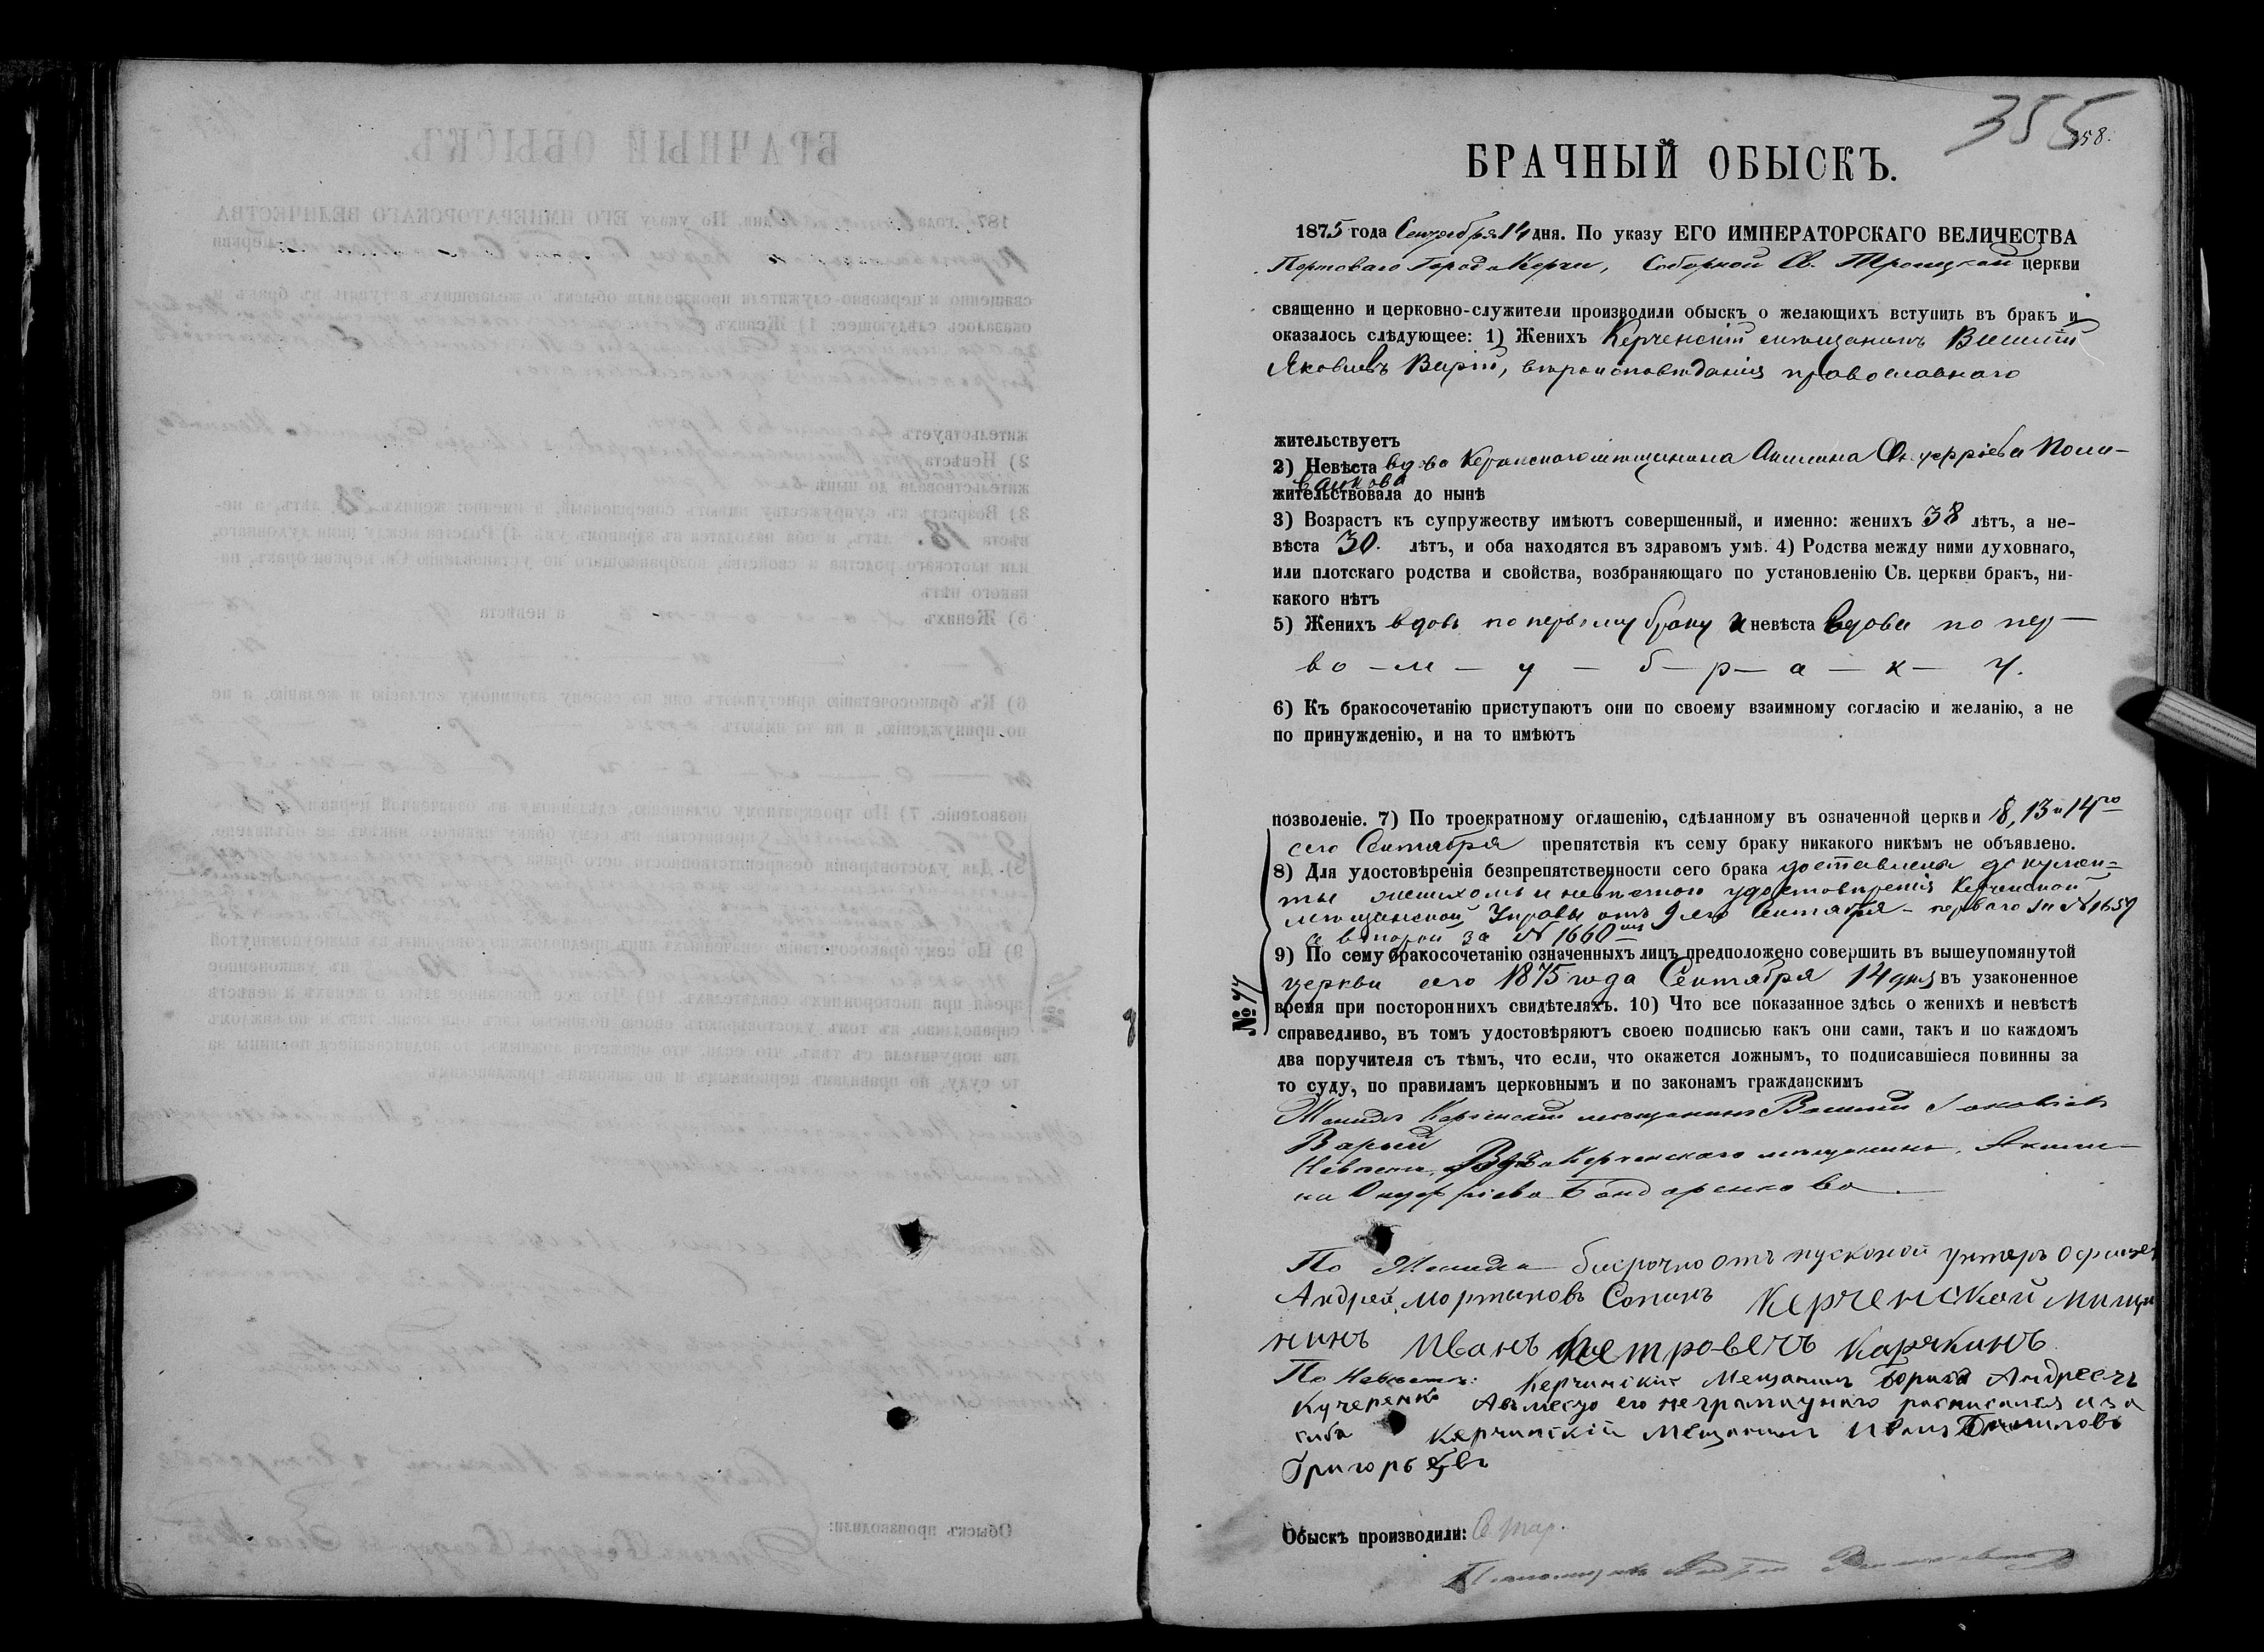 355
358.
БРАЧНЫЙ ОБЫСКЪ.
1875 года Сентября 14 дня. По указу ЕГО ИМПЕРАТОРСКАГО ВЕЛИЧЕСТВА
Портоваго Города Керчи, Соборной Св. Троицкой церкви
священно и церковно-служители производили обыскъ о желающихъ вступить въ бракъ и
оказалось слѣдующее: 1) Женихъ Керченскій мѣщанинъ
Яковлевъ Варій, вѣроисповѣданія православнаго
жительствуетъ
2) Невѣста вдова Керченского мѣщанина Акилина Онуфріева
жительствовала до нынѣ
3) Возрастъ къ супружеству имѣютъ совершенный, и именно: женихъ 38 лѣтъ, а не-
вѣста 30. лѣтъ, и оба находятся въ здравомъ умѣ. 4) Родства между ними духовнаго,
или плотскаго родства и свойства, возбраняющаго по установленію Св. церкви бракъ, ни-
какого нѣтъ
5) Женихъ вдовъ по первому браку и невѣста вдова по пер—
во — м — у — б — р — а — к — у.
6) Къ бракосочетанію приступаютъ они по своему взаимному согласію и желанію, а не
по принужденію, и на то имѣютъ
позволеніе. 7) По троекратному оглашенію, сдѣланному въ означенной церкви 8, 13 и 14го
сего Сентября препятствія къ сему браку никакого никѣмъ не объявлено.
8) Для удостовѣренія безпрепятственности сего брака доставлены докумен=
ты женихомъ и невѣстою удостовѣренія Керченской
мѣщанской Управы отъ 9 сего Сентября - перваго за № 1659
а второй за № 1660
9) По сему бракосочетанію означенныхъ лицъ предположено совершить въ вышеупомянутой
церкви сего 1875 года Сентября 14 дня въ узаконенное
№ 77
время при постороннихъ свидѣтеляхъ. 10) Что все показанное здѣсь о женихѣ и невѣстѣ
справедливо, въ томъ удостовѣряютъ своею подписью какъ они сами, такъ и по каждомъ
два поручителя съ тѣмъ, что если, что окажется ложнымъ, то подписавшіеся повинны за
то суду, по правиламъ церковнымъ и по законамъ гражданскимъ
Женихъ Керченскій мещанинъ Яковлевъ
Варый
Невѣста, Вдова Керченскаго мѣщанина, Акили—
на Онуфріева Бондаренкова
По Женихѣ безрочно отъ пускной унтеръ офицер
Андрей Мортыновъ Сопинъ Керченской мищи
нинъ Иванъ Петровечъ Карякинъ
По Невѣстѣ: Керчинскій Мещанин Борисъ Андреечъ
Кучеренко Авместо его неграмоунаго росписался иза
сиба Керчинскій мещанин Иван Данилов
Григорьевъ
Обыскъ производили: